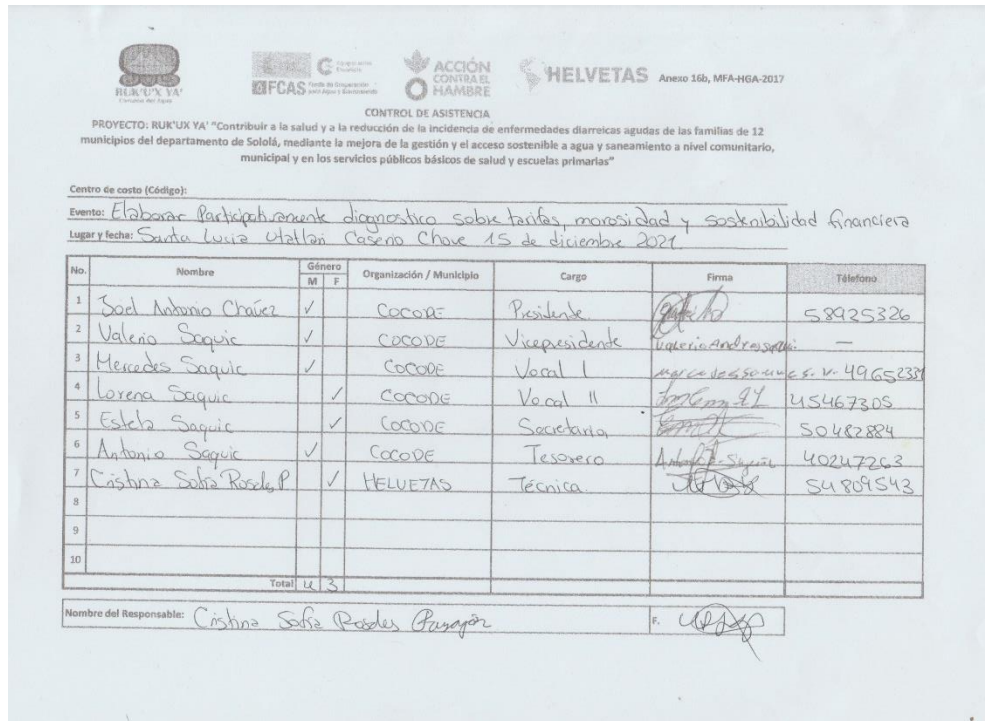 RUK'U'X YA'
FCAS Fondo de Cooperación para Agua y Saneamiento
ACCIÓN CONTRA EL HAMBRE
HELVETAS Anexo 16b, MFA-HGA-2017
CONTROL DE ASISTENCIA
PROYECTO: RUK'UX YA' "Contribuir a la salud y a la reducción de la incidencia de enfermedades diarreicas agudas de las familias de 12
municipios del departamento de Sololá, mediante la mejora de la gestión y el acceso sostenible a agua y saneamiento a nivel comunitario,
municipal y en los servicios públicos básicos de salud y escuelas primarias"
Centro de costo (Código):
Evento: Elaborar Participativamente diagnostico sobre tarifas, morosidad y sostenibilidad financiera
Lugar y fecha: Santa Lucia Utatlán Caserio Chove 15 de diciembre 2021
No. Nombre Género M F Organización / Municipio Cargo Firma Télefono
1 Joel Antonio Chávez ✓ COCODE Presidente 58925326
2 Valerio Saquic ✓ COCODE Vicepresidente —
3 Mercedes Saquic ✓ COCODE Vocal I 49652331
4 Lorena Saquic ✓ COCODE Vocal II 45467305
5 Estela Saquic ✓ COCODE Secretaria 50482884
6 Antonio Saquic ✓ COCODE Tesorero 40247263
7 Cristina Sofia Rosales P ✓ HELVETAS Técnica 54809543
8
9
10
Total 4 3
Nombre del Responsable: Cristina Sofia Rosales F.